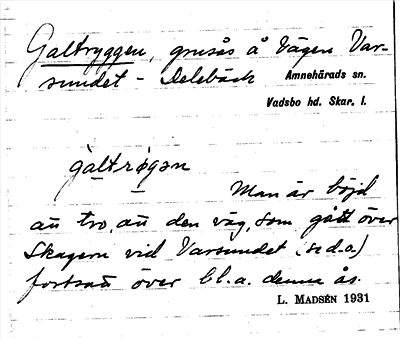 Galtryggen, grusås å vägen Var-
sundet – Delebäck Amnehärads sn.
Vadsbo hd. Skar. l.
gàltrøgən
Man är böjd
att tro, att den väg, som gått över
Skagern vid Varsundet (se d. o.)
fortsatt över bl. a. denna ås.
L. MADSÉN 1931